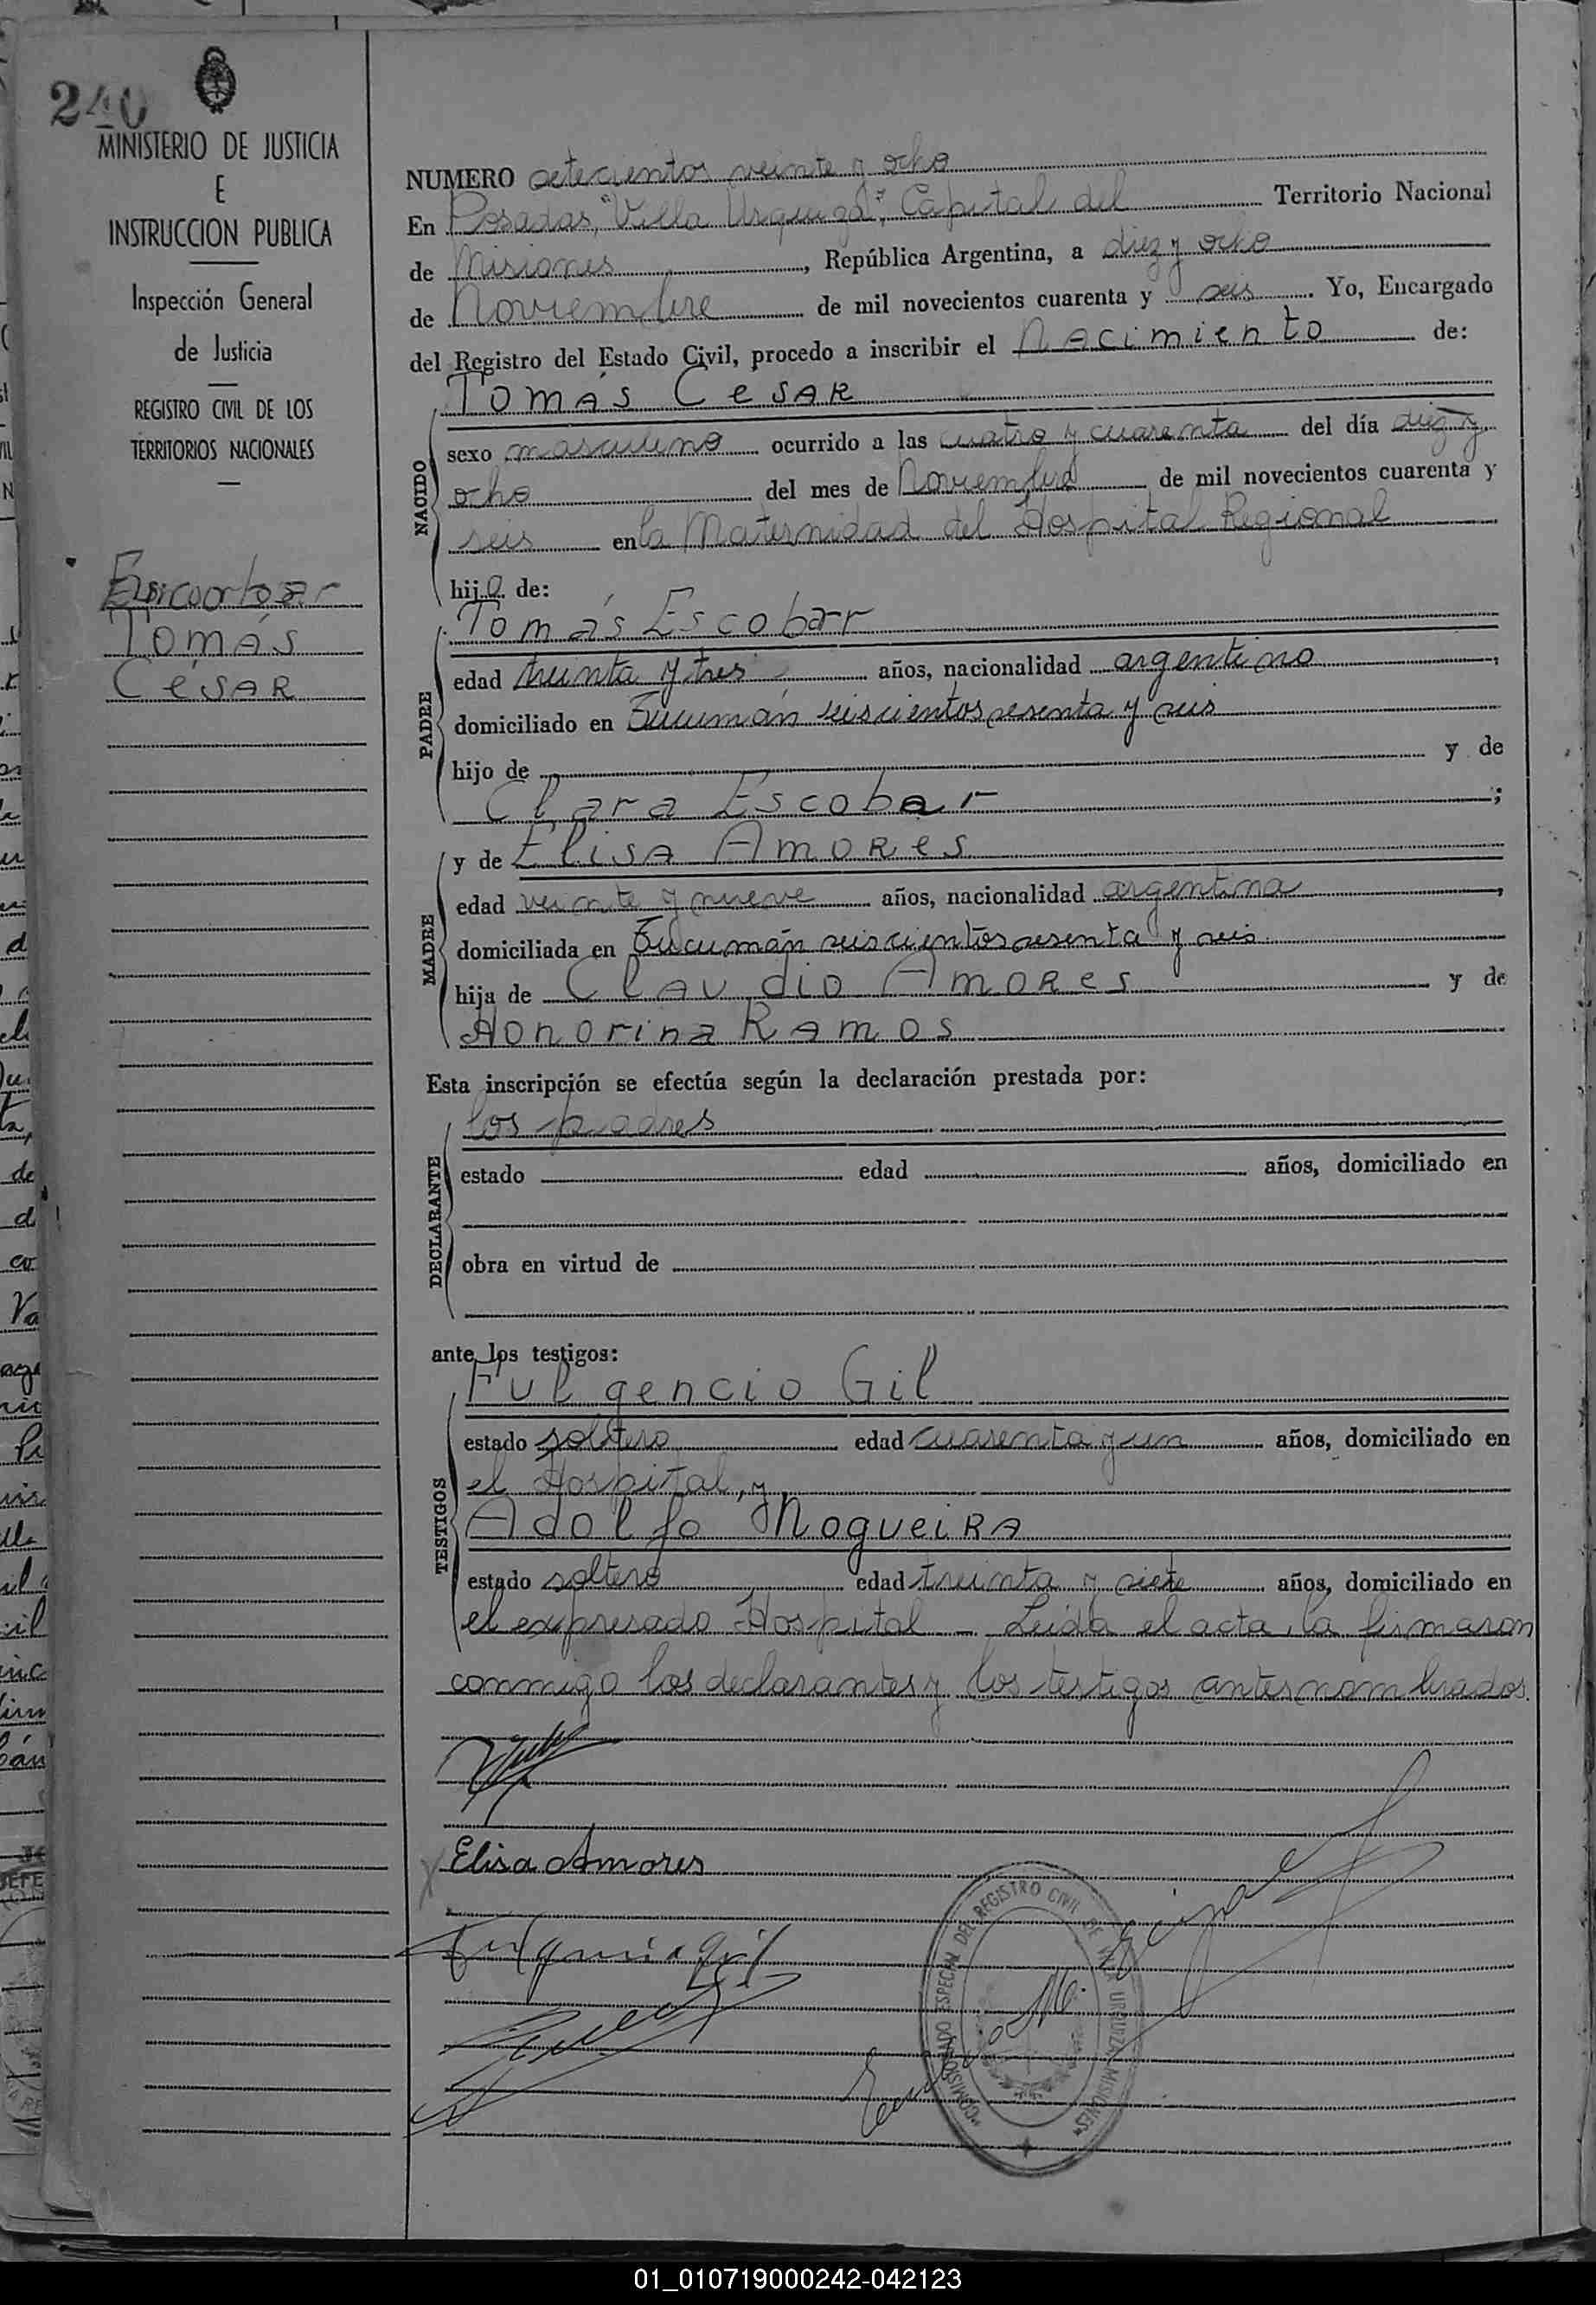 240
MINISTERIO DE JUSTICIA
E
INSTRUCCION PUBLICA
Inspección General
de Justicia
REGISTRO CIVIL DE LOS
TERRITORIOS NACIONALES
Escobar
Tomás
César
NUMERO setecientos veinte y ocho
En Posadas, "Villa Urquiza", Capital del Territorio Nacional
de Misiones, República Argentina, a diez y ocho
de Noviembre de mil novecientos cuarenta y seis. Yo, Encargado
del Registro del Estado Civil, procedo a inscribir el Nacimiento de:
Tomás Cesar
NACIDO
sexo masculino ocurrido a las cuatro y cuarenta del día diez y
ocho del mes de Noviembre de mil novecientos cuarenta y
seis en la Maternidad del Hospital Regional
hijo de:
Tomás Escobar
PADRE
edad treinta y tres años, nacionalidad argentino,
domiciliado en Tucumán seiscientos sesenta y seis
hijo de y de
Clara Escobar;
y de Elisa Amores
MADRE
edad veinte y nueve años, nacionalidad argentina,
domiciliada en Tucumán seiscientos sesenta y seis
hija de Claudio Amores y de
Honorina Ramos
Esta inscripción se efectúa según la declaración prestada por:
los padres
DECLARANTE
estado edad años, domiciliado en
obra en virtud de
ante los testigos:
Fulgencio Gil
TESTIGOS
estado soltero edad cuarenta y un años, domiciliado en
el Hospital, y
Adolfo Nogueira
estado soltero edad treinta y siete años, domiciliado en
el expresado Hospital - Leida el acta, la firmaron
conmigo los declarantes y los testigos antes nombrados.
Elisa Amores
Fulgencio Gil
"COMISIONADO ESPECIAL DEL REGISTRO CIVIL DE VILLA URQUIZA MISIONES"
01_010719000242-042123